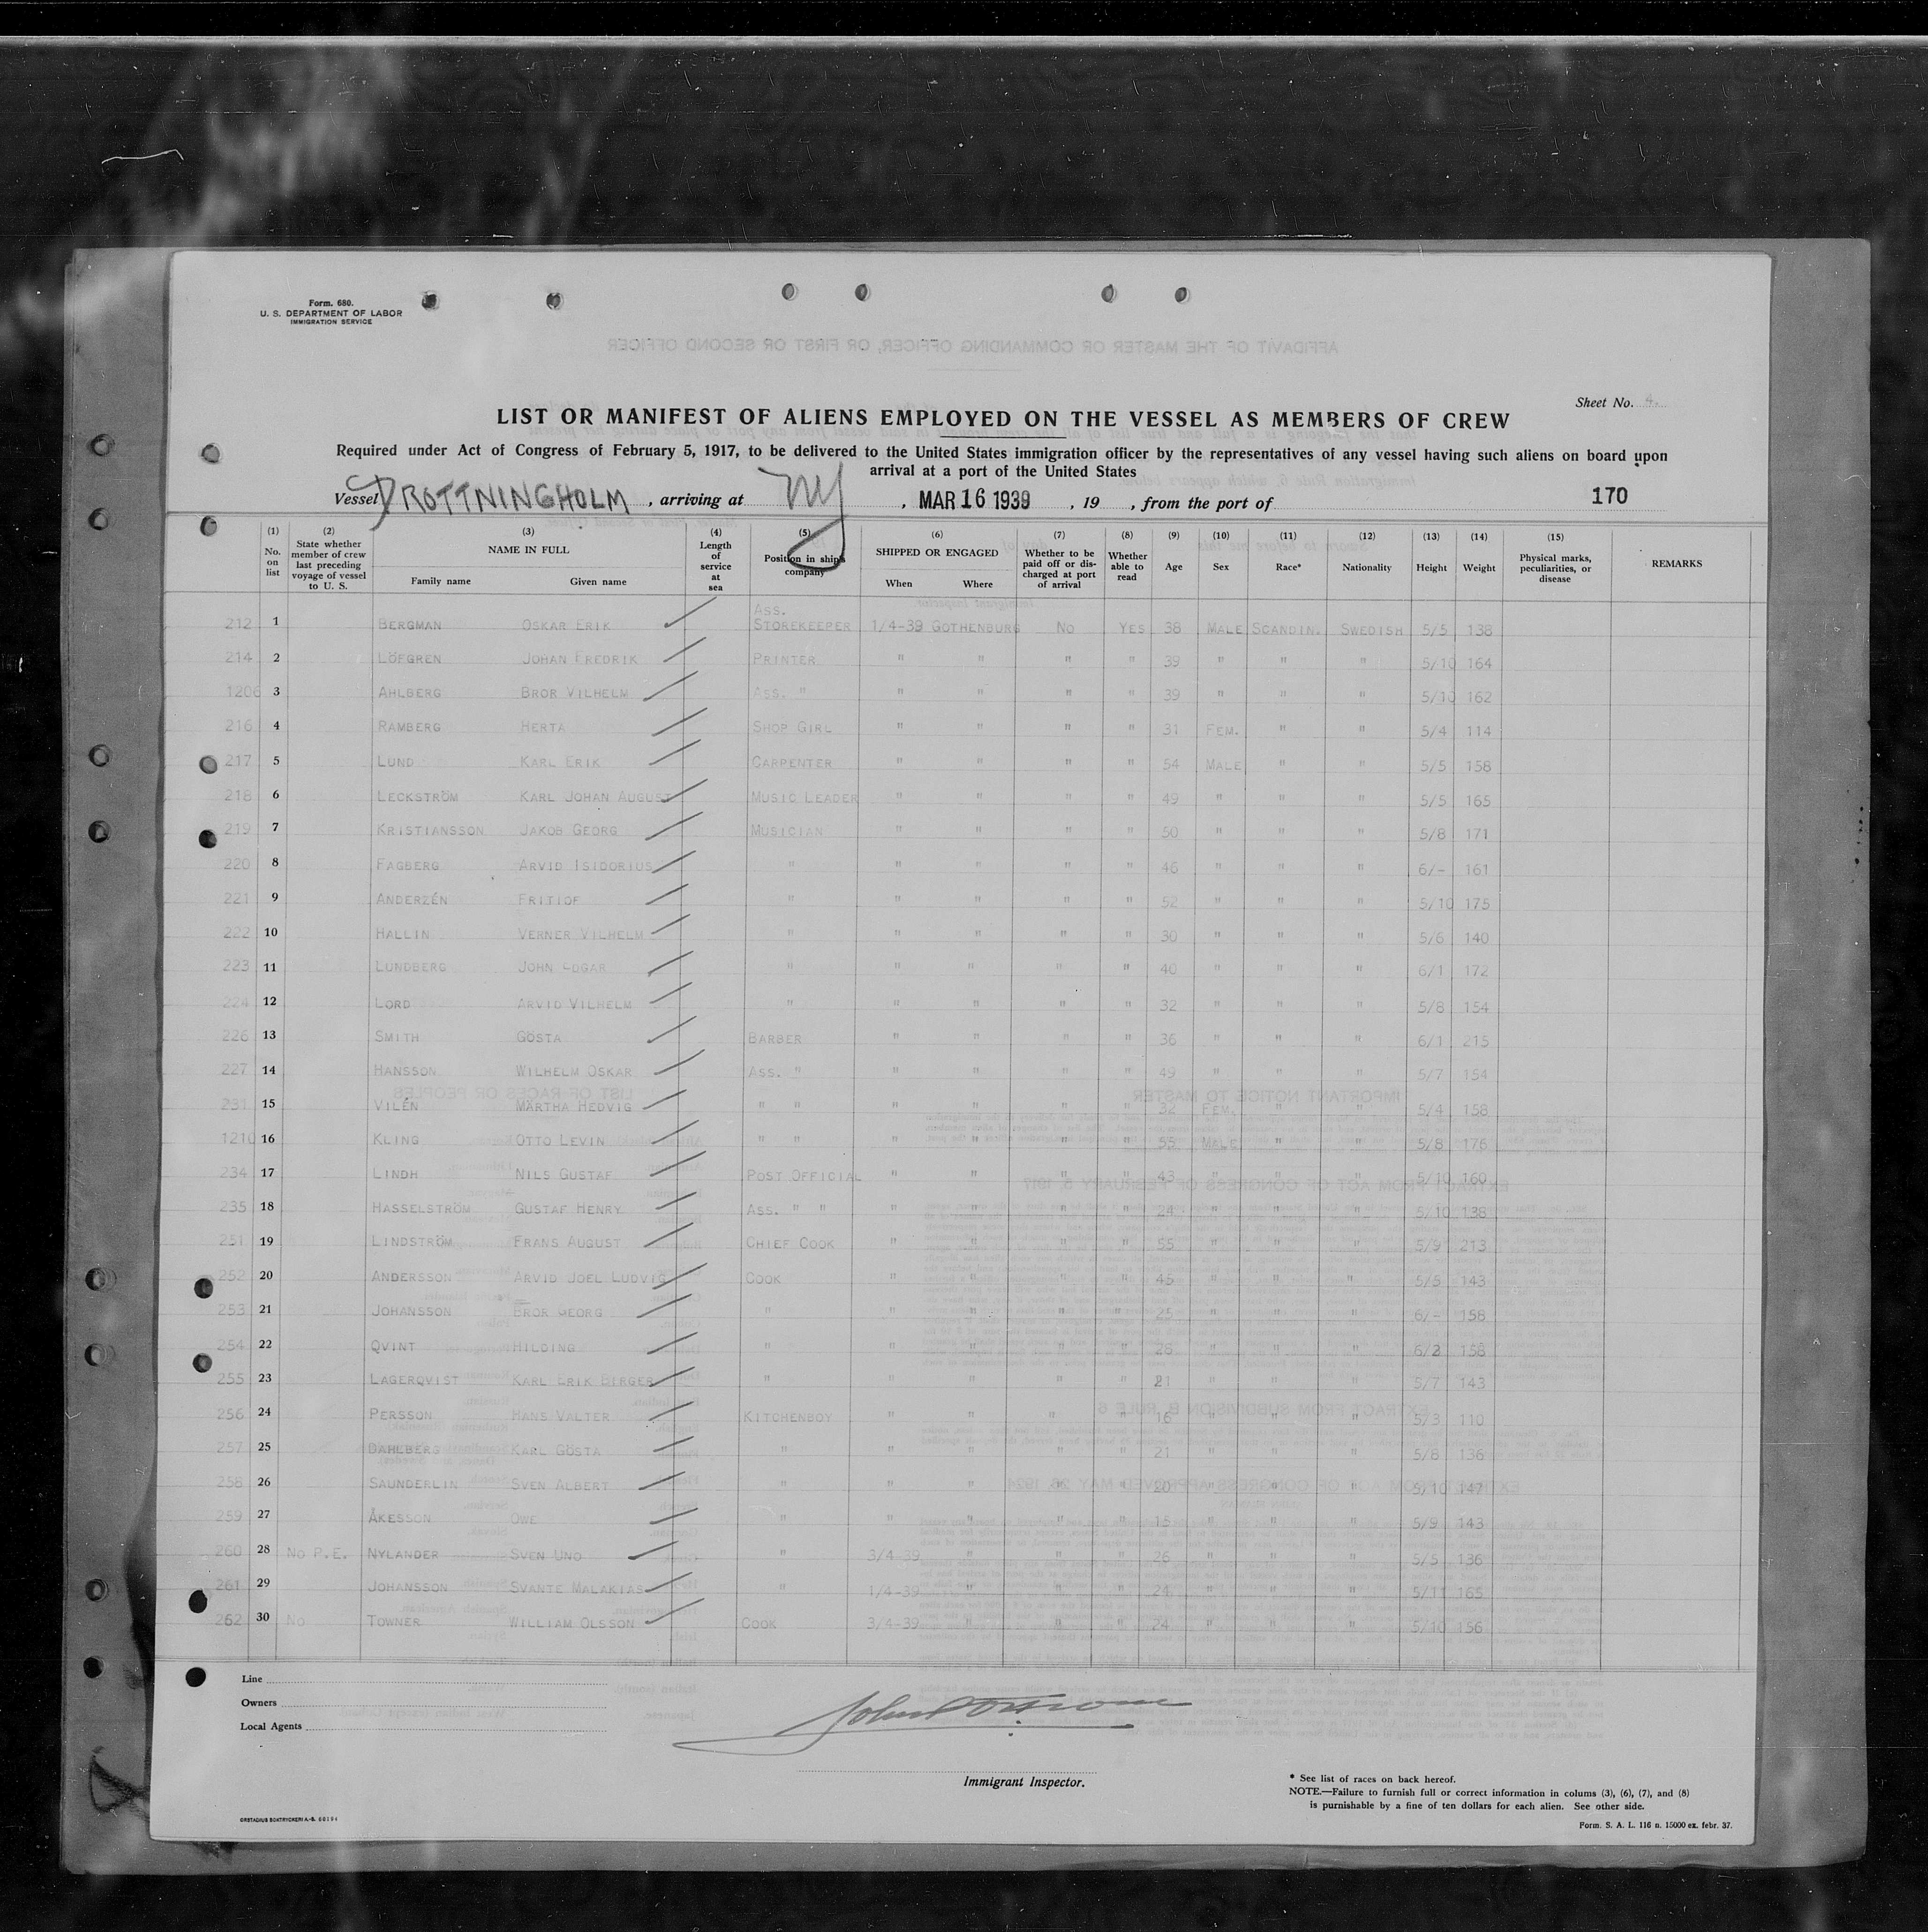 Form. 680.
U. S. DEPARTMENT OF LABOR
IMMIGRATION SERVICE
Sheet No. 4.
LIST OR MANIFEST OF ALIENS EMPLOYED ON THE VESSEL AS MEMBERS OF CREW
Required under Act of Congress of February 5, 1917, to be delivered to the United States immigration officer by the representatives of any vessel having such aliens on board upon
arrival at a port of the United States
Vessel DROTTNINGHOLM , arriving at NY , MAR 16 1939 , 19 , from the port of 170
(1) No. on list (2) State whether member of crew last preceding voyage of vessel to U. S. (3) NAME IN FULL Family name Given name (4) Length of service at sea (5) Position in ship's company (6) SHIPPED OR ENGAGED When Where (7) Whether to be paid off or discharged at port of arrival (8) Whether able to read (9) Age (10) Sex (11) Race* (12) Nationality (13) Height (14) Weight (15) Physical marks, peculiarities, or disease REMARKS
212 1 BERGMAN OSKAR ERIK ASS. STOREKEEPER 1/4-39 GOTHENBURG NO YES 38 MALE SCANDIN. SWEDISH 5/5 138
214 2 LÖFGREN JOHAN FREDRIK PRINTER " " " " 39 " " " 5/10 164
1206 3 AHLBERG BROR VILHELM ASS. " " " " " 39 " " " 5/10 162
216 4 RAMBERG HERTA SHOP GIRL " " " " 31 FEM. " " 5/4 114
217 5 LUND KARL ERIK CARPENTER " " " " 54 MALE " " 5/5 158
218 6 LECKSTRÖM KARL JOHAN AUGUST MUSIC LEADER " " " " 49 " " " 5/5 165
219 7 KRISTIANSSON JAKOB GEORG MUSICIAN " " " " 50 " " " 5/8 171
220 8 FAGBERG ARVID ISIDORIUS " " " " " 46 " " " 6/- 161
221 9 ANDERZÉN FRITIOF " " " " " 52 " " " 5/10 175
222 10 HALLIN VERNER VILHELM " " " " " 30 " " " 5/6 140
223 11 LUNDBERG JOHN EDGAR " " " " " 40 " " " 6/1 172
224 12 LORD ARVID VILHELM " " " " " 32 " " " 5/8 154
226 13 SMITH GÖSTA BARBER " " " " 36 " " " 6/1 215
227 14 HANSSON WILHELM OSKAR ASS. " " " " " 49 " " " 5/7 154
231 15 VILÉN MÄRTHA HEDVIG " " " " " " 32 FEM. " " 5/4 158
1210 16 KLING OTTO LEVIN " " " " " " 55 MALE " " 5/8 176
234 17 LINDH NILS GUSTAF POST OFFICIAL " " " " 43 " " " 5/10 160
235 18 HASSELSTRÖM GUSTAF HENRY ASS. " " " " " " 24 " " " 5/10 138
251 19 LINDSTRÖM FRANS AUGUST CHIEF COOK " " " " 55 " " " 5/9 213
252 20 ANDERSSON ARVID JOEL LUDVIG COOK " " " " 45 " " " 5/5 143
253 21 JOHANSSON BROR GEORG " " " " " 25 " " " 6/- 158
254 22 QVINT HILDING " " " " " 28 " " " 6/2 158
255 23 LAGERQVIST KARL ERIK BIRGER " " " " " 21 " " " 5/7 143
256 24 PERSSON HANS VALTER KITCHENBOY " " " " 16 " " " 5/3 110
257 25 DAHLBERG KARL GÖSTA " " " " " 21 " " " 5/8 136
258 26 SAUNDERLIN SVEN ALBERT " " " " " 20 " " " 5/10 147
259 27 ÅKESSON OWE " " " " " 15 " " " 5/9 143
260 28 NO P.E. NYLANDER SVEN UNO " 3/4-39 " " " 26 " " " 5/5 136
261 29 JOHANSSON SVANTE MALAKIAS " 1/4-39 " " " 24 " " " 5/11 165
262 30 NO TOWNER WILLIAM OLSSON COOK 3/4-39 " " " 24 " " " 5/10 156
Line
Owners
Local Agents
Immigrant Inspector.
* See list of races on back hereof.
NOTE.—Failure to furnish full or correct information in colums (3), (6), (7), and (8)
is purnishable by a fine of ten dollars for each alien. See other side.
Form. S. A. L. 116 n. 15000 ex. febr. 37.